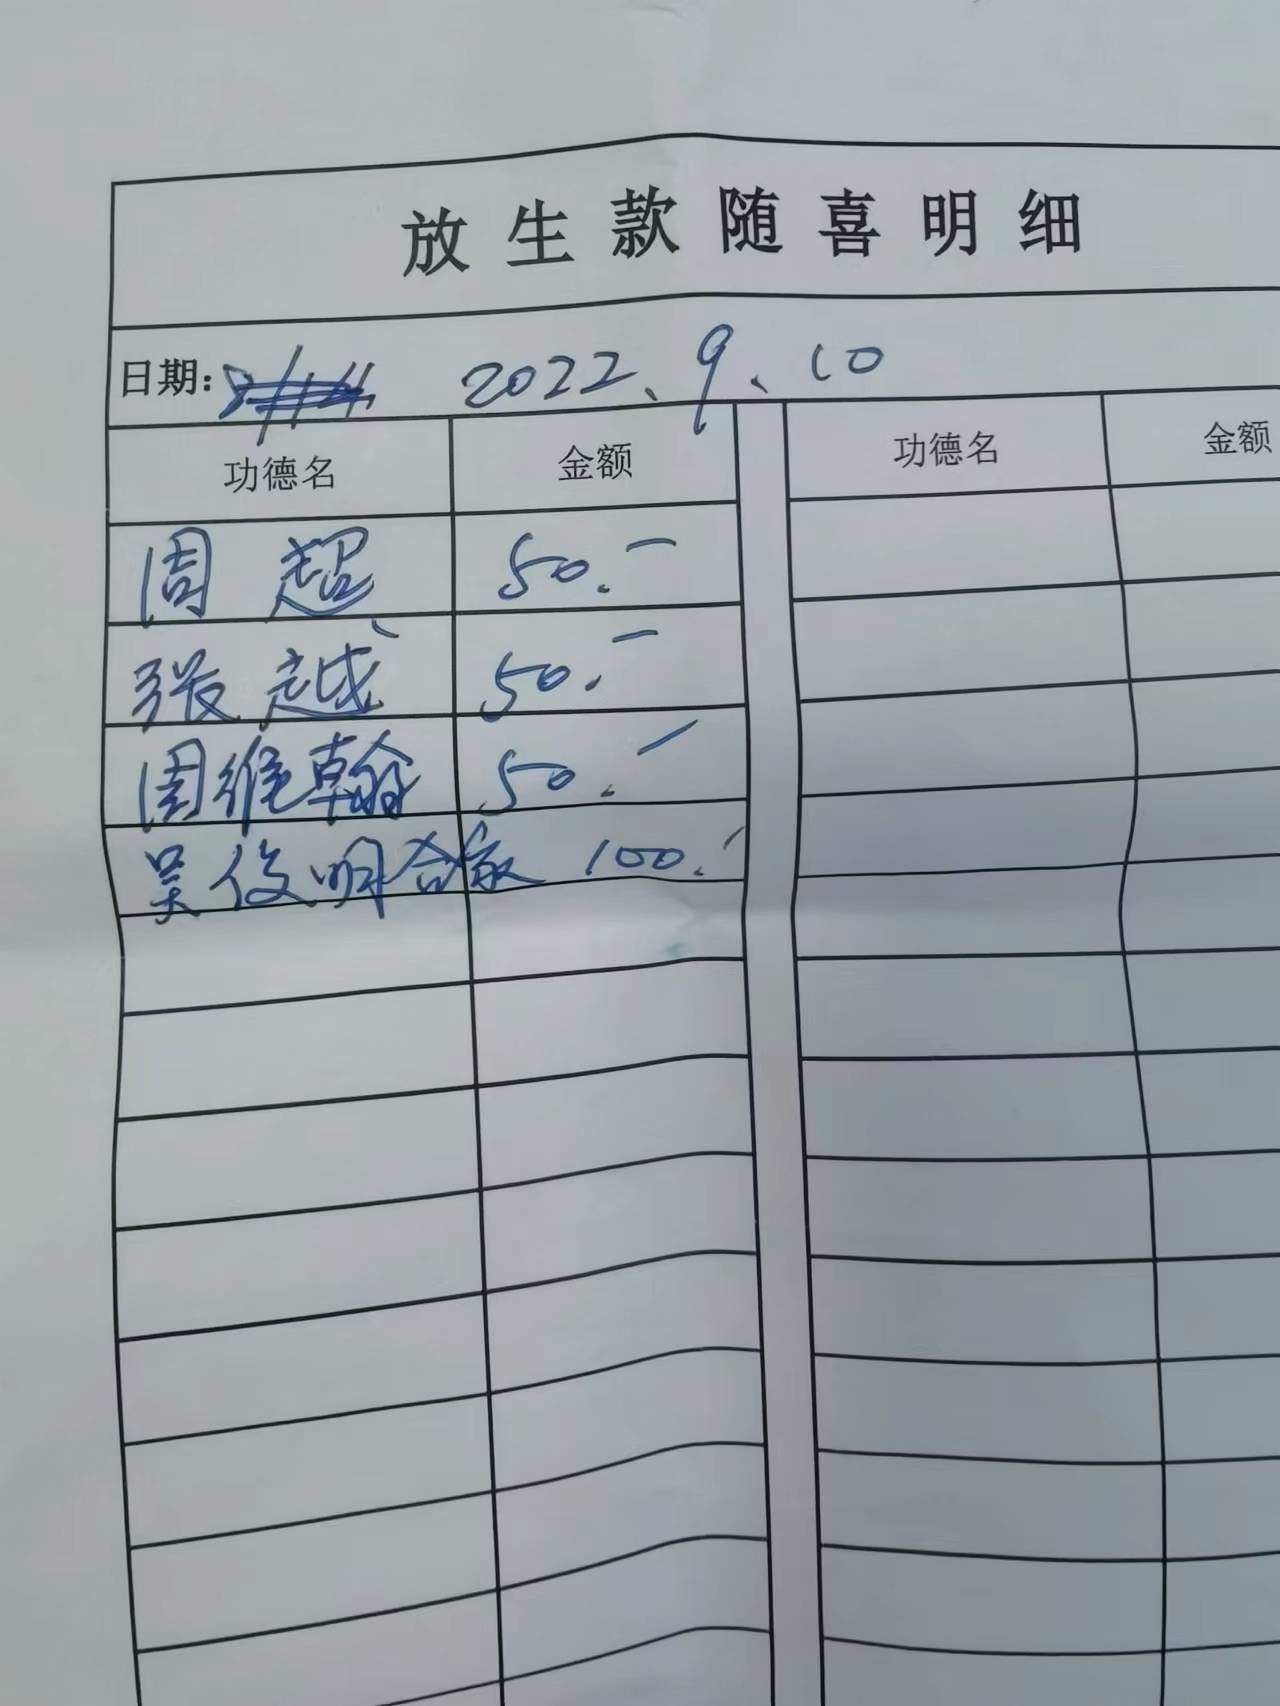 放生款随喜明细
日期: 2022、9、10
功德名 金额 功德名 金额
周超 50.一
张越 50.一
周维翰 50.一
吴俊明合家 100.一